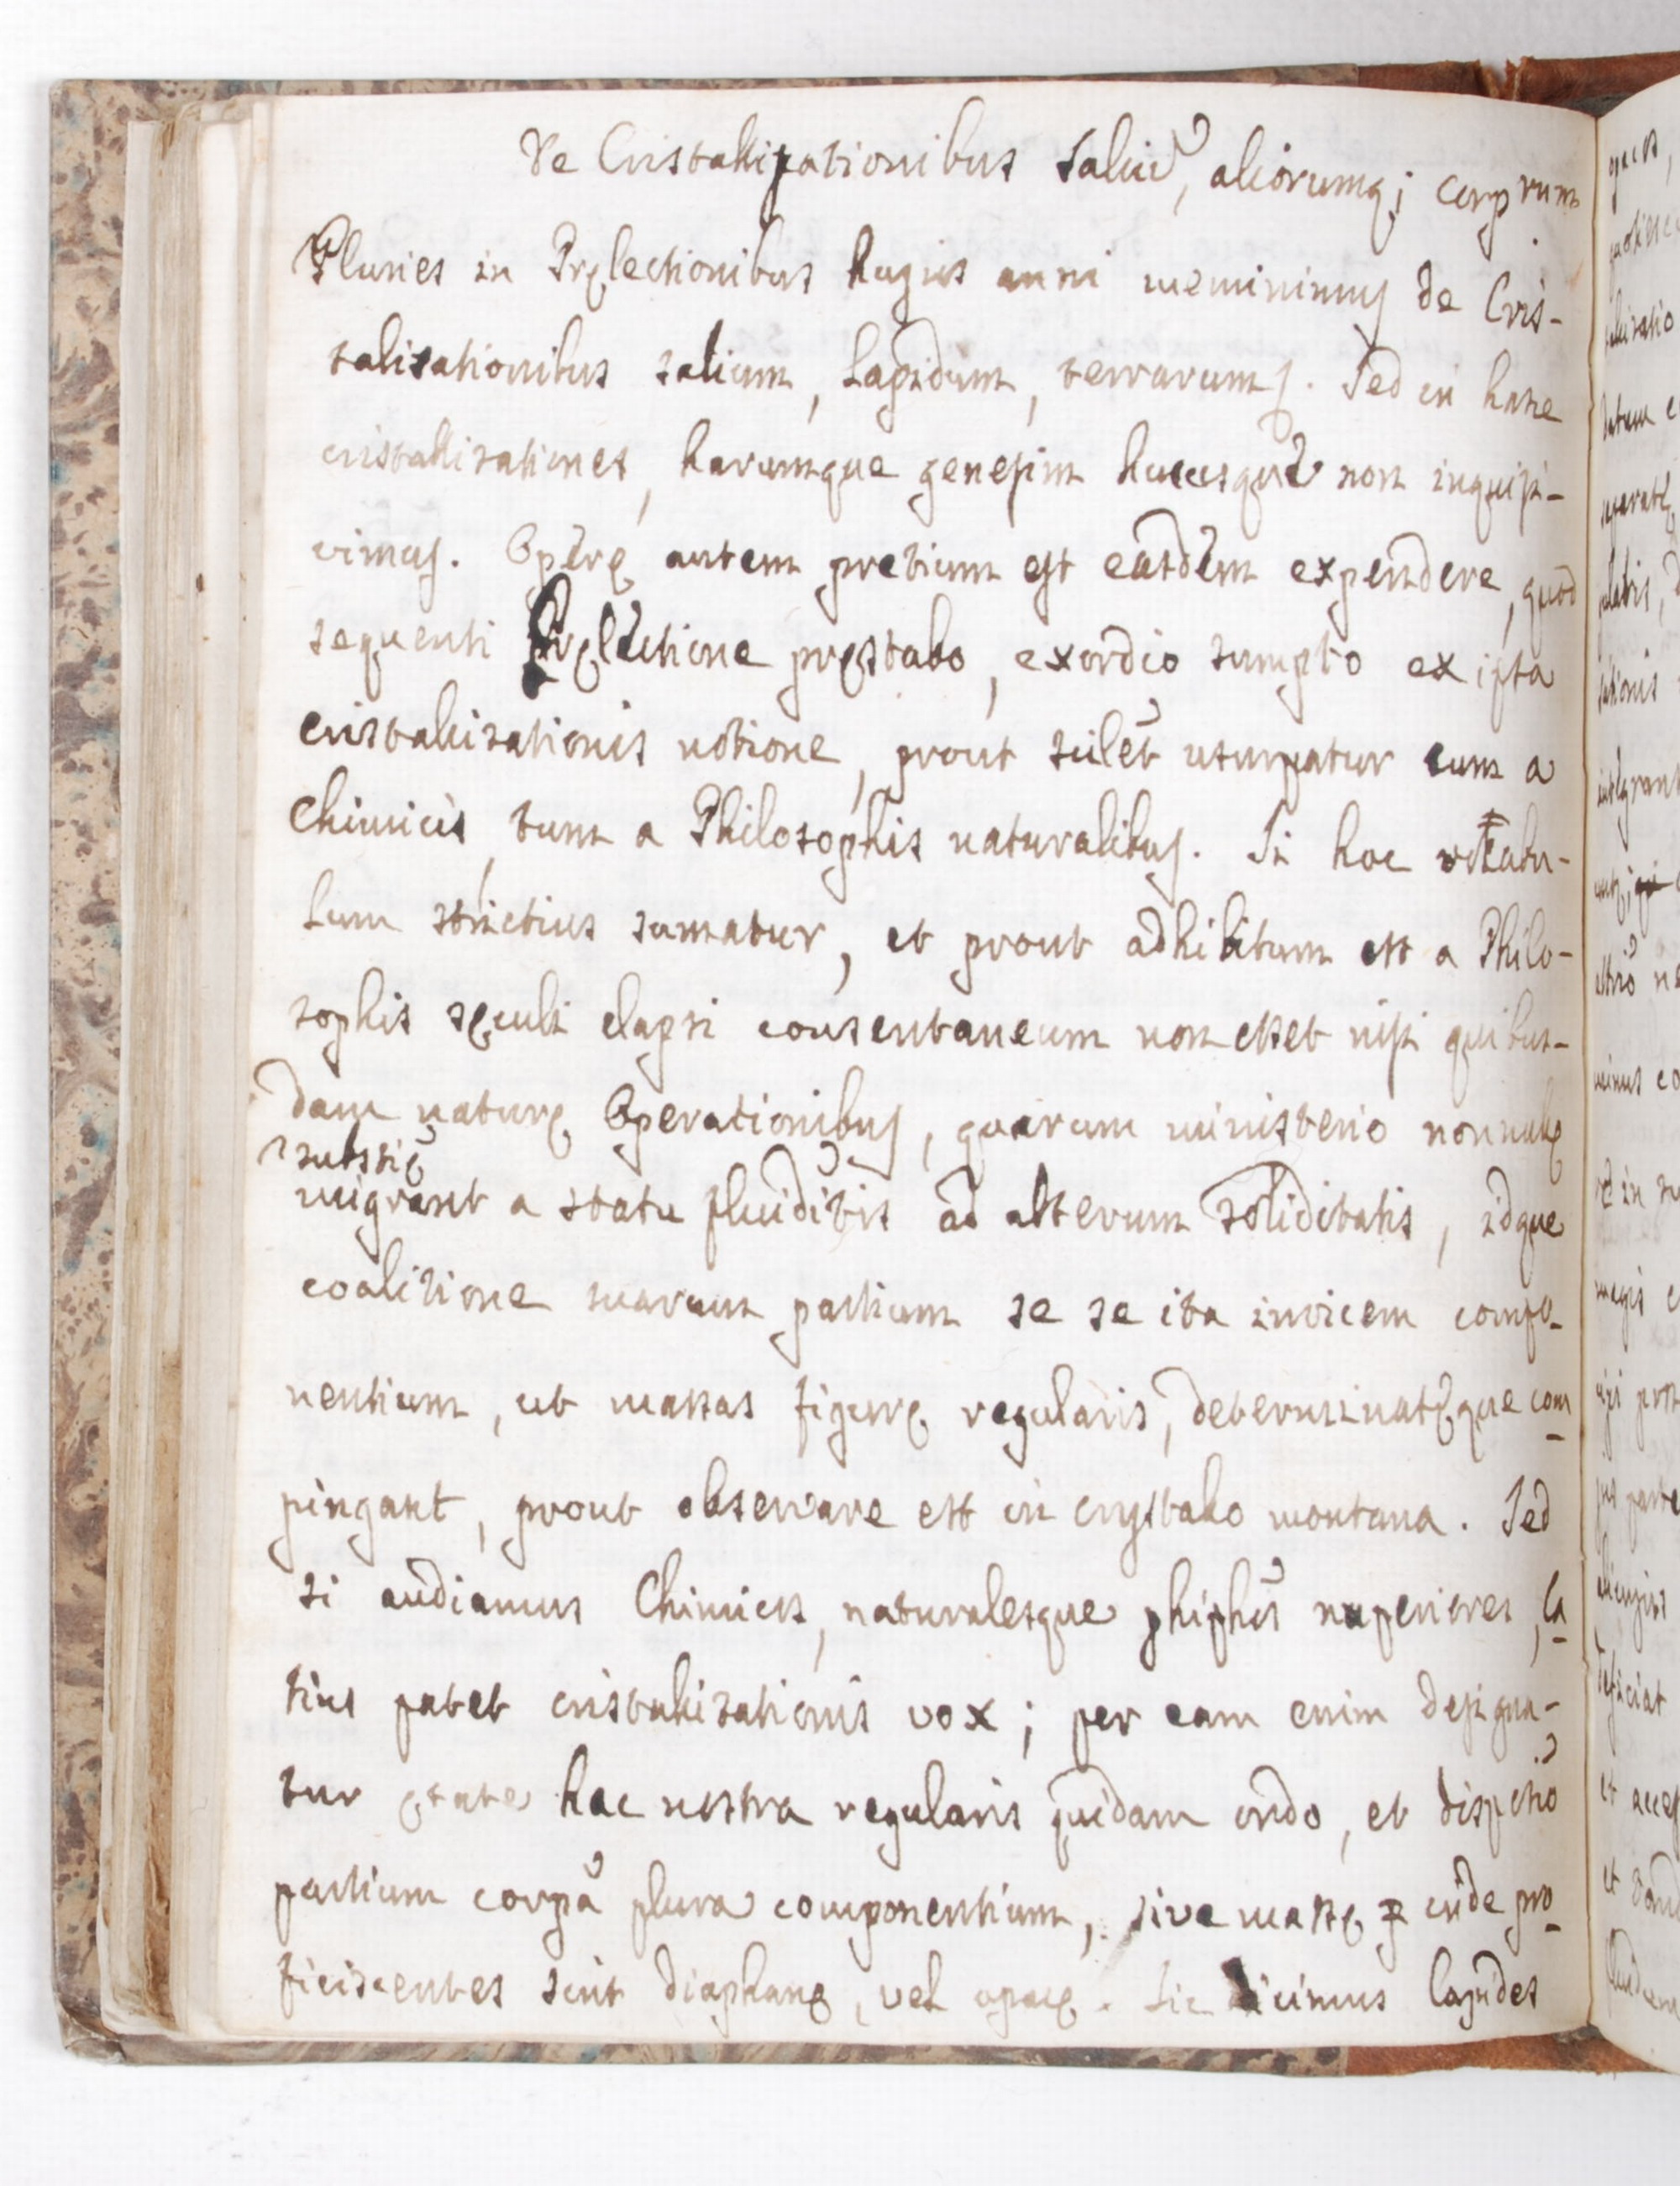 De Cristallizationibus Saliũ, aliorumq; corporum
Pluries in Pręlectionibus hujus anni meminimus de Cris-
talizationibus salium, Lapidum, terrarumq. Sed in hasce
cristallizationes, harumque genesim hucusque non inquisi-
vimus. Operę autem pretium est easdem expendere, quod
sequenti Pręlectione pręstabo, exordio sumpto ex ipsa
cristallizationis notione, prout scilet usurpatur cum a
Chimicis, tum a Philosophis naturalibus. Si hoc vocabu-
lum strictius sumatur, et prout adhibitum est a Philo-
sophis sęculi elapsi consentaneum non esset nisi quibus-
dam naturę Operationibus, quarum ministerio nonnullę
substię
migrant a statu fluiditis ad alterum soliditatis, idque
coalitione suarum partium se se ita invicem compo-
nentium, ut massas figurę regularis, determinatęque com
pingant, prout observare est in crystallo montana. Sed
si audiamus Chimicos, naturalesque phiphos nuperiores, la
tius patet cristallizationis vox; per eam enim designa-
tur ętate hac nostra regularis quidam ordo, et dispotio
partium corpa plura componentium, sive massę inde pro
ficiscentes sint diaphanę, vel opacę. Sic dicimus lapides